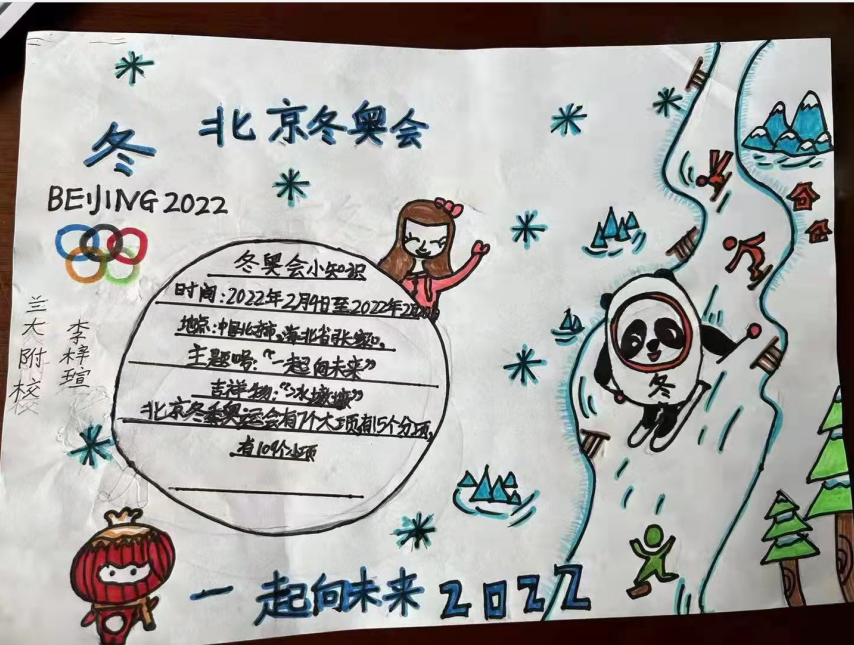 北京冬奥会
冬
BEIJING 2022
冬奥会小知识
时间:2022年2月4日至2022年2月
地点:中国北京市,河北省张家口。
主题口号:“一起向未来”
吉祥物:“冰墩墩”
北京冬季奥运会有7个大项,有15个分项,
有109个小项
兰大附校
李梓瑄
冬
一起向未来 2022